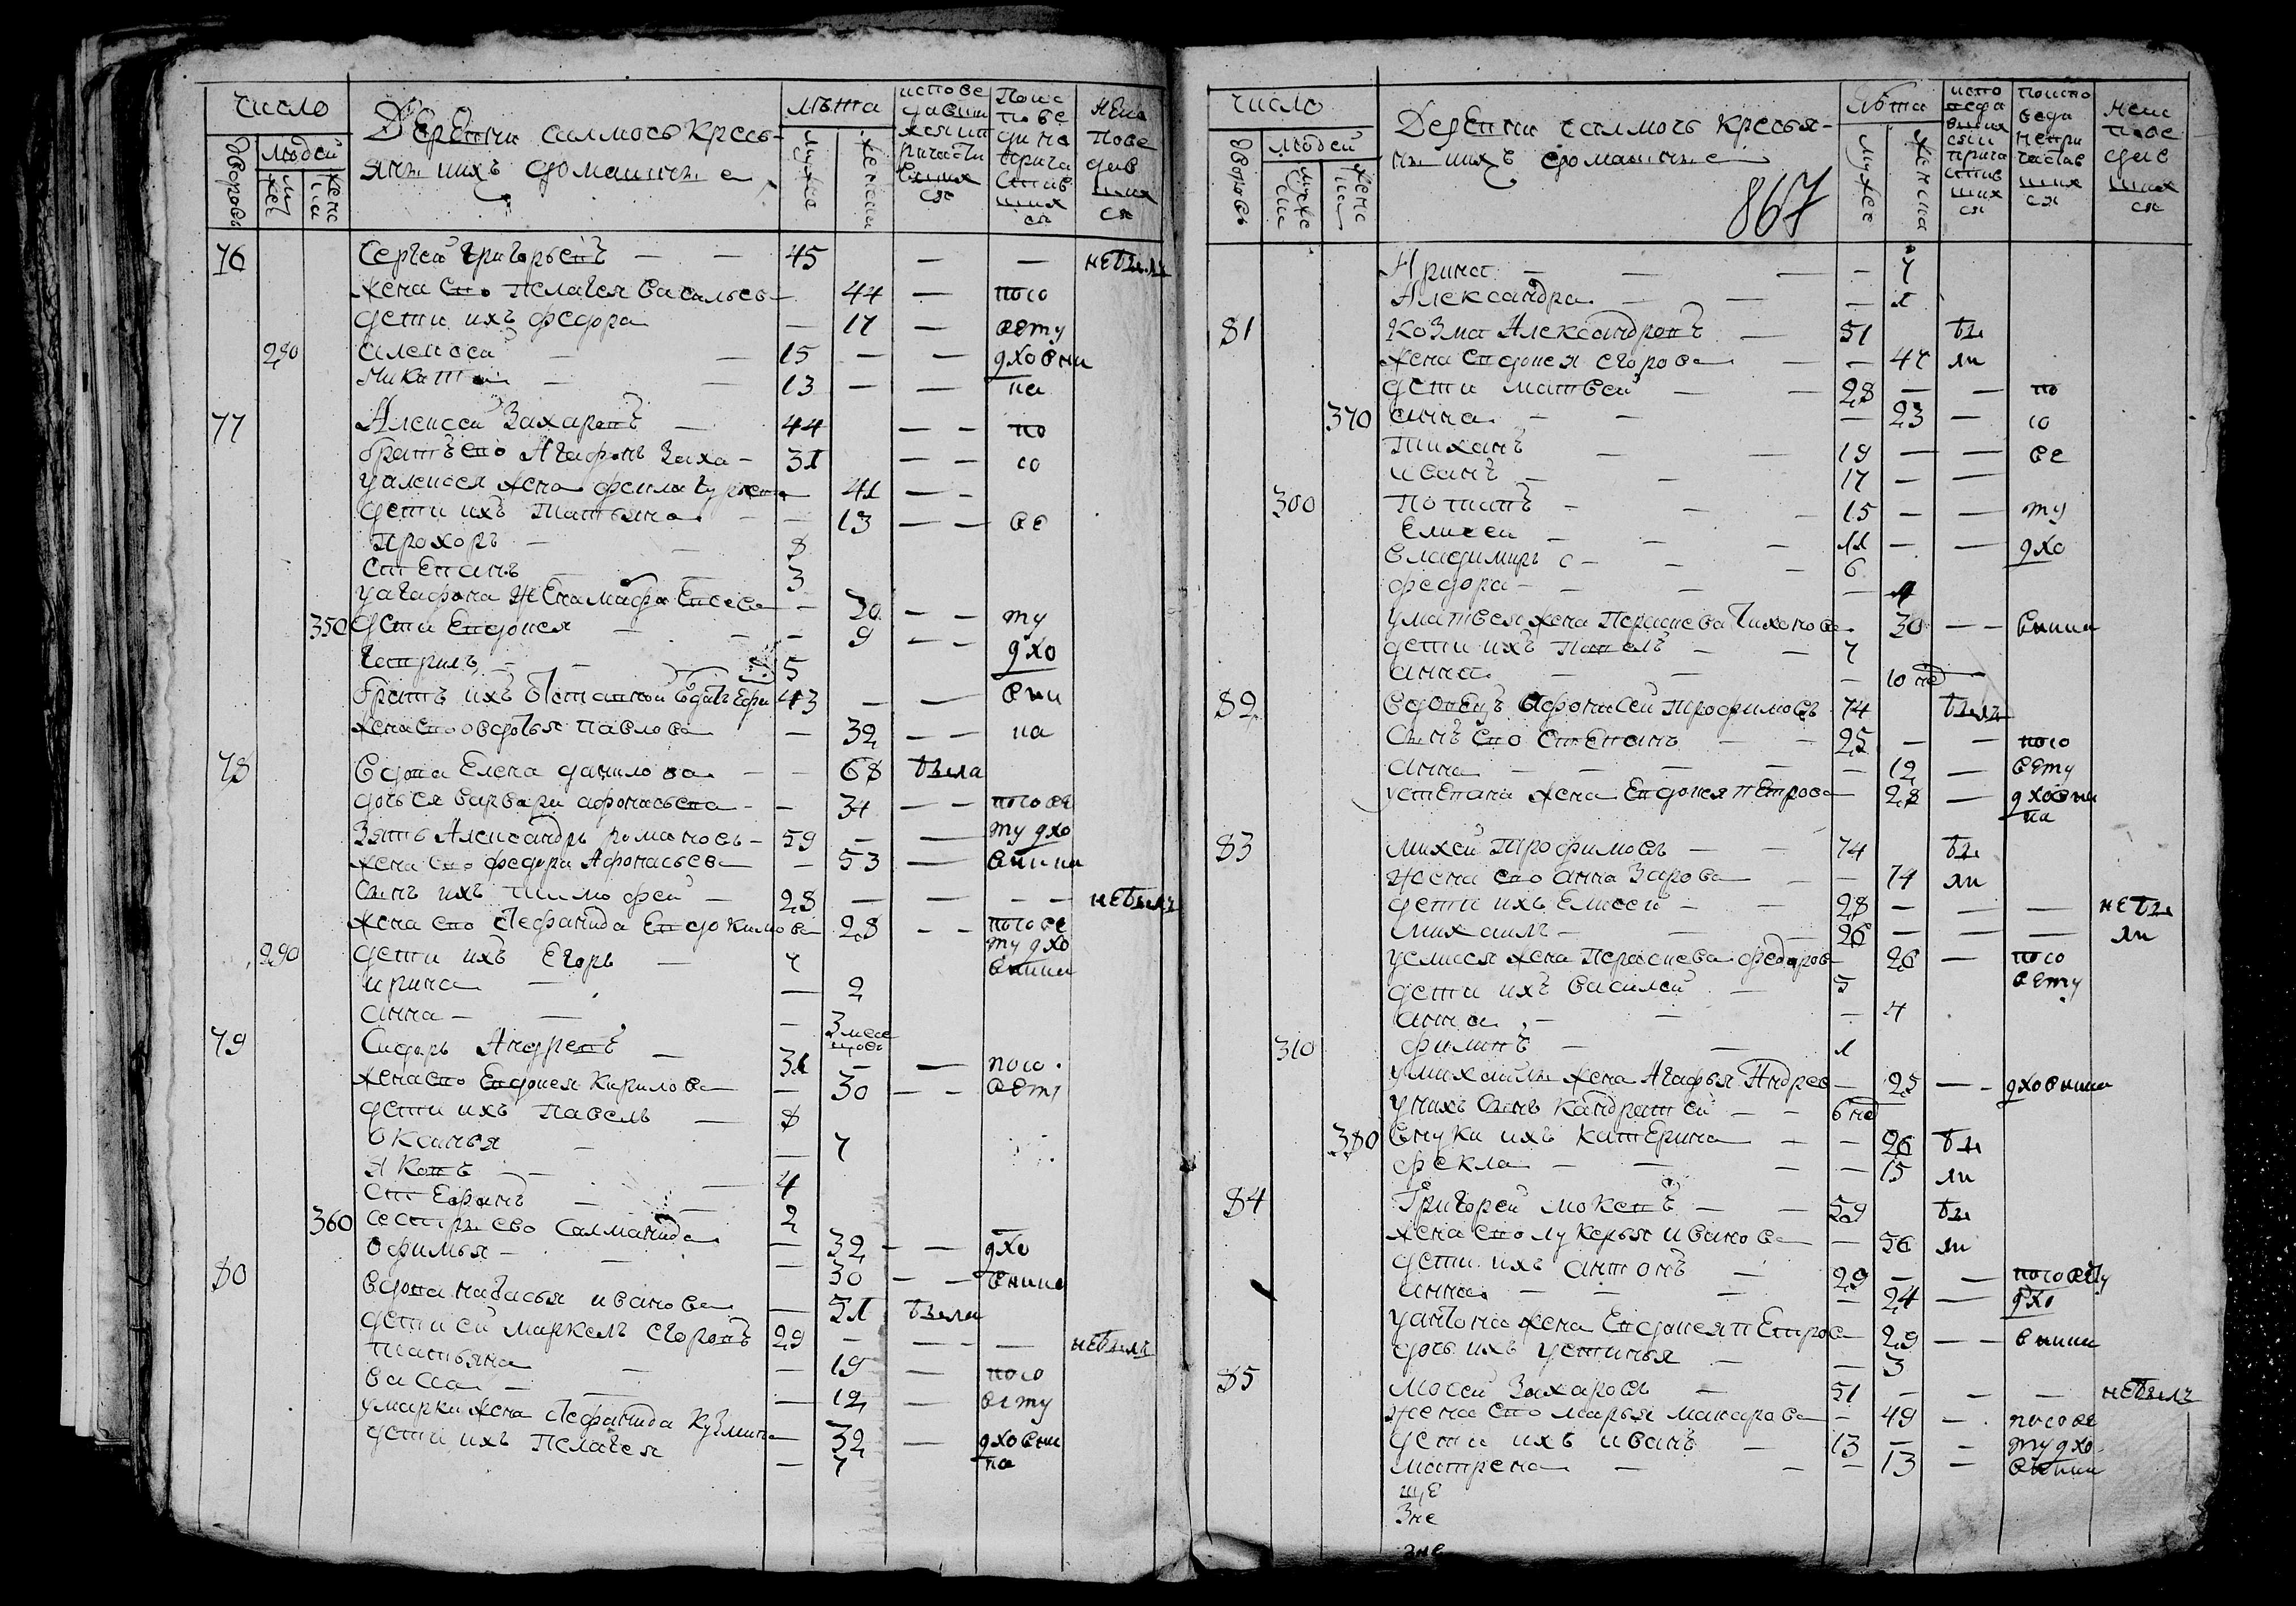 число
Деревни салмось кресь-
янъ ихъ домашные
лѣта
людей
дворовъ
76 Сергей Григорьевъ — — 45 — — небылъ
жена ево Пелагея Васильев — 44 — посо
дети ихъ федора — 17 — вету
280 алексей — — 15 — — дховни
никита — — 13 — — ка
77 Алексей Захаровъ — 44 — — по
братъ ево Агафонъ Заха- 31 — — со
уалексея жена фекла гурьева 41 — —
дети ихъ татьяна — — 13 — — ве
прохоръ — — 8
степанъ — — 3
уагафона жена марфа Евсева — 30 — — ту
350 дети Евдокея — — 9 — — дхо
гаврилъ — — 5
братъ ихъ 43 — — вни
жена ево овдотья павлова — 32 — — ка
78 вдова Елена данилова — — 68 была
дочь ея варвара афонасьева — — 34 — — посове
Зять Александръ романовъ — 59 — — ту дхо
жена ево федора Афонасьева — 53 — вника
сынъ ихъ тимофей — 28 — — — — небылъ
жена ево Стефанида Евдокимова 28 — — посове
ту дхо
290 дети ихъ Егоръ — 4 вника
ирина — — 2
анна — — — 3 месе
цовъ
79 Сидоръ Андревъ — 31 — — посо
жена ево Евдокея Кирилова — 30 — — вету
дети ихъ павелъ — 8
оксинья — — 7
яковъ — — — 4
стефанъ — — 2
360 сестры ево Саламанида — 32 — — дхо
офимья — — — 30 — — вника
80 вдова настасья иванова — 51 была
дети ей маркелъ егоровъ 29 — — — небылъ
татьяна — — 19 — посо
васса — — — 12 — вету
умарки жена Стефанида Кузмина — 32 — дховни
дети ихъ Пелагея — 7 ка
число
Деревни салмось кресья-
нъ ихъ домашные
867
лѣта
людей
дворовъ
Ирина — — — — 7
Александра — — — 1
81 Козма Александровъ — 51 бы
жена евдокея егорова — — 47 ли
дети матвей — — 28 — — по
370 анна — — — 23 — со
тиханъ — — 19 — — ве
иванъ — — 17 — —
300 потапъ — — — 15 — — ту
Елисей — — 11 — — дхо
владимиръ — — — 6
федора — — — — 4
уматвея жена Пераскева Тихонова 30 — — вника
дети ихъ павелъ — — 7
анна — — — 10 не
82 вдовецъ Афонасей трофимовъ 74 былъ
сынъ ево степанъ — — 25 — — посо
анна — — — — — 12 — вету
устепана жена Евдокея петрова — 28 — дховни
ка
83 михей трофимовъ — — 74 бы
жена ево анна Зарова — — 74 ли
дети ихъ Елисей — — 28 — — — небы
михаилъ — — 26 — — — ли
уелисея жена Пераскева федоров 26 — посо
дети ихъ василей — 5 вету
анна — — — 4
310 филипъ — — 1
умихаилы жена Агафья Андрее — 25 — — дховника
унихъ сынъ кандратей — — 6 не
380 внуки ихъ катерина — — 26 бы
фекла — — — — 15 ли
84 Григорей мокевъ — — 59 бы
жена ево лукерья иванова — 56 ли
дети ихъ антонъ — 29 — — посовету
анна — — — — 24 — дхо
уантона жена Евдокея петров 29 — — вника
дочь ихъ устинья — — 3
85 мосей Захаровъ — 51 — — — небылъ
жена ево марья макарова — 49 — посове
дети ихъ иванъ — 13 — — ту дхо
матрена — — — 13 — вника